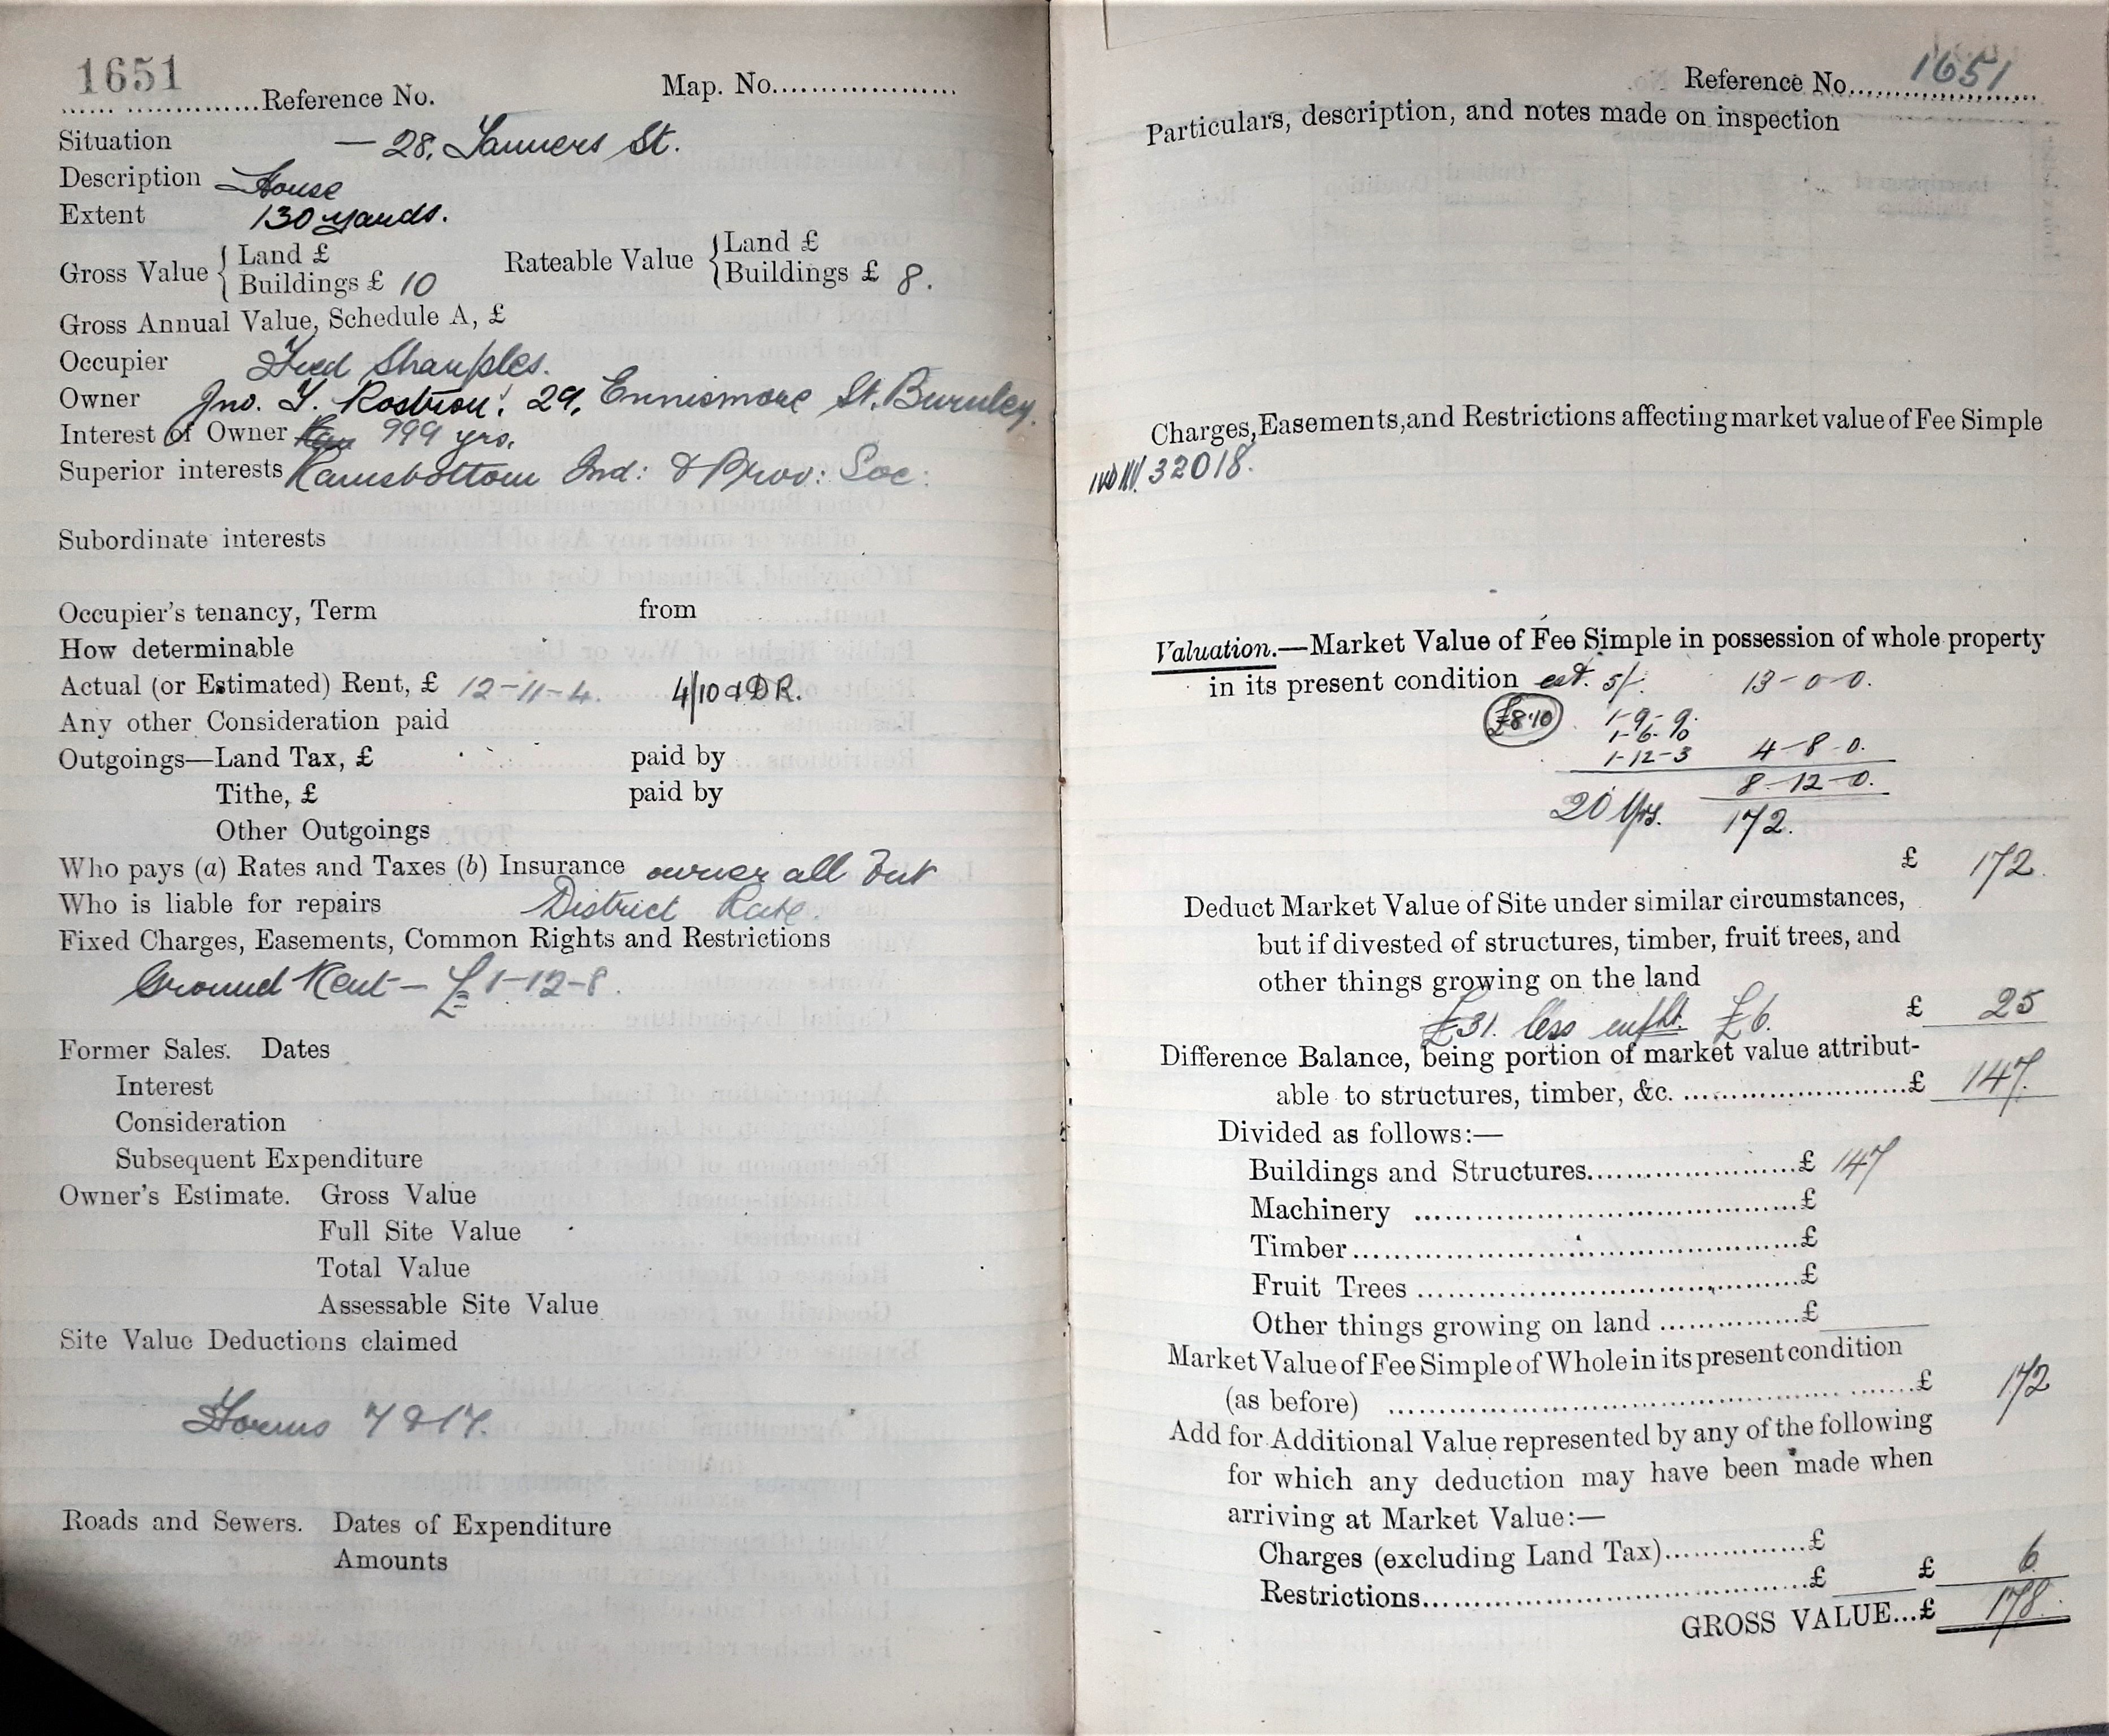 1651
Reference No. Map. No.
Situation — 28, Tanners St.
Description House
Extent 130 yards.
Gross Value { Land £
Buildings £ 10
Rateable Value { Land £
Buildings £ 8.
Gross Annual Value, Schedule A, £
Occupier Fred Sharples.
Owner Jno. Y. Rostron. 29, Ennismore St. Burnley.
Interest of Owner 999 yrs.
Superior interests Ramsbottom Ind: & Prov: Soc:
Subordinate interests
Occupier's tenancy, Term from
How determinable
Actual (or Estimated) Rent, £ 12-11-4. 4/10 & DR.
Any other Consideration paid
Outgoings—Land Tax, £ paid by
Tithe, £ paid by
Other Outgoings
Who pays (a) Rates and Taxes (b) Insurance owner all but
Who is liable for repairs District Rate.
Fixed Charges, Easements, Common Rights and Restrictions
Ground Rent — £1-12-8.
Former Sales. Dates
Interest
Consideration
Subsequent Expenditure
Owner's Estimate. Gross Value
Full Site Value
Total Value
Assessable Site Value
Site Value Deductions claimed
Forms 7 & 17.
Roads and Sewers. Dates of Expenditure
Amounts
Reference No. 1651
Particulars, description, and notes made on inspection
Charges, Easements, and Restrictions affecting market value of Fee Simple
32018.
Valuation.—Market Value of Fee Simple in possession of whole property
in its present condition est. 5/- 13-0-0.
£8.10 1-9-9.
1-6-
1-12-3 4-8-0.
8-12-0.
20 Yrs. 172.
£ 172.
Deduct Market Value of Site under similar circumstances,
but if divested of structures, timber, fruit trees, and
other things growing on the land
£31. less £6. £ 25
Difference Balance, being portion of market value attribut-
able to structures, timber, &c. £ 147.
Divided as follows:—
Buildings and Structures £ 147
Machinery £
Timber £
Fruit Trees £
Other things growing on land £
Market Value of Fee Simple of Whole in its present condition
(as before) £ 172
Add for Additional Value represented by any of the following
for which any deduction may have been made when
arriving at Market Value:—
Charges (excluding Land Tax) £
Restrictions £ £ 6
GROSS VALUE...£ 178.